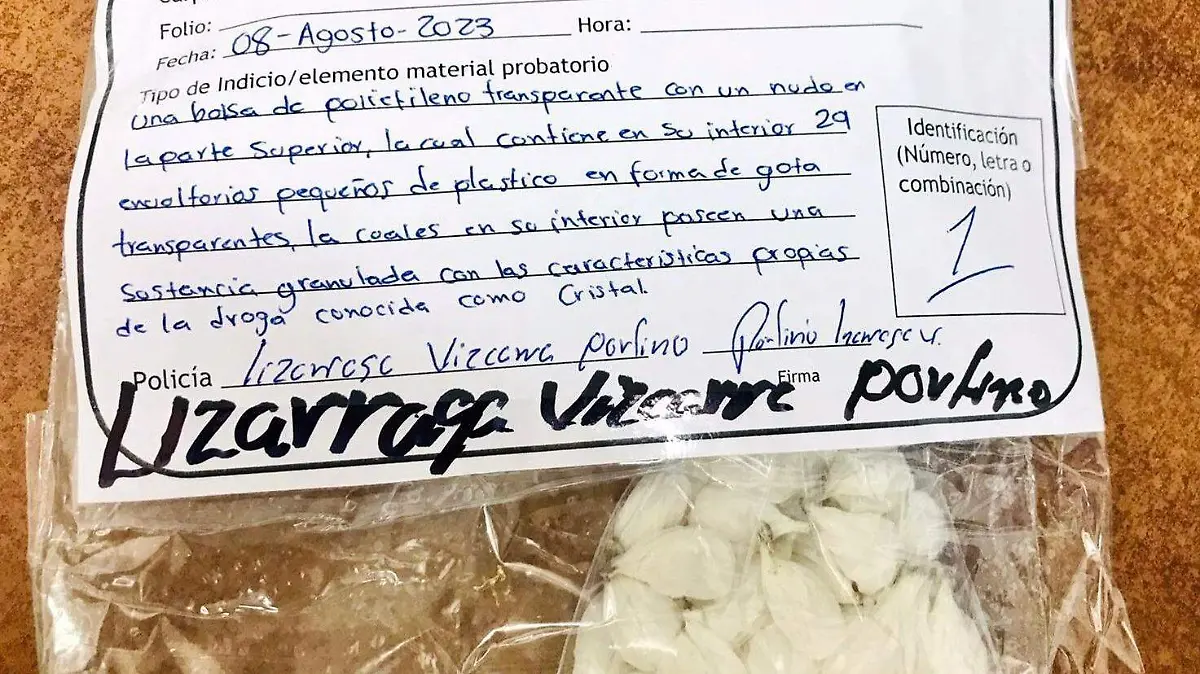 Folio:
Fecha: 08-Agosto-2023 Hora:
Tipo de Indicio/elemento material probatorio
una bolsa de polietileno transparente con un nudo en
la parte superior, la cual contiene en su interior 29
envoltorios pequeños de plastico en forma de gota
transparentes, la cuales en su interior poseen una
Sustancia granulada con las caracteristicas propias
de la droga conocida como Cristal.
Identificación
(Número, letra o
combinación)
1
Policía Lizarraga Vizcarra Porfino Porfirio Lizarraga V.
Firma
Lizarraga Vizcarra Porfirio